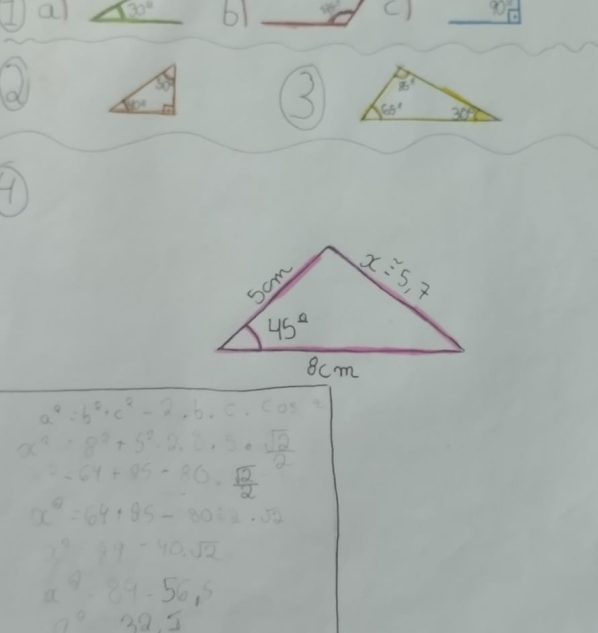 1 a) 30° b) c) 90°
2
3 65° 30°
4
5cm
x ≅ 5,7
45°
8cm
a² = b² + c² - 2.b.c.cos
x² = 8² + 5² - 2.8.5.√2/2
64 + 25 - 80.√2/2
x² = 64 + 25 - √2
89 - 40.√2
89 - 56,5
32,5